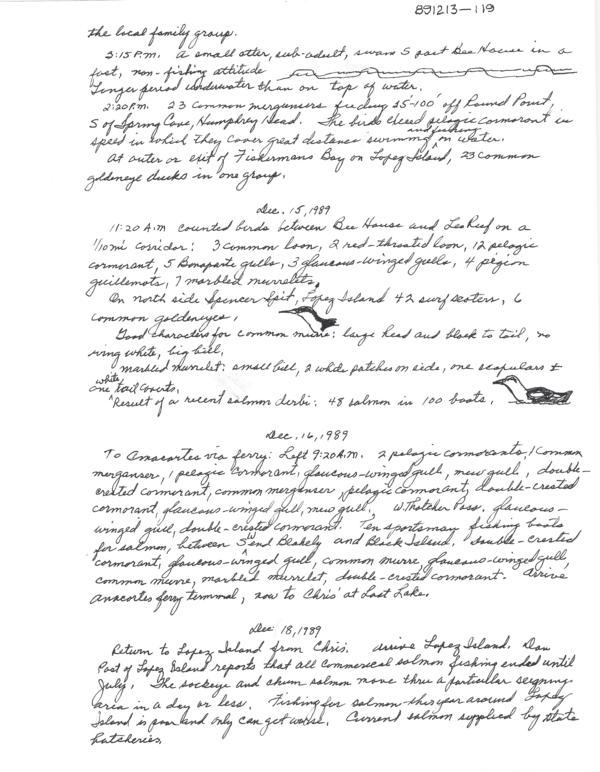 891213-119
the local family group.
5:15 P.M. a small otter, sub-adult, swam S past Bee House in a
fast, non-fishing attitude
Longer period underwater than on top of water.
2:20 P.M. 23 Common mergansers feeding 35'-100' off Round Point,
S of Spring Cove, Humphrey Head. The birds exceed pelagic cormorant in
speed in which they cover great distance swimming and fishing on water.
At outer or exit of Fishermans Bay on Lopez Island, 23 common
goldeneye ducks in one group.
Dec. 15, 1989
11:20 A.M counted birds between Bee House and Leo Reef on a
1/10 mi corridor: 3 common loon, 2 red-throated loon, 12 pelagic
cormorant, 5 Bonaparte gulls, 3 glaucous-winged gulls, 4 pigion
guillemots, 7 marbled murrelets.
On north side Spencer Spit, Lopez Island 42 surf scoters, 6
common goldeneyes.
Good characters for common murre: large head and black to tail, no
ring white, big bill,
marbled murrelet: small bill, 2 white patches on side, one scapulars +
one white tail coverts.
Result of a recent salmon derbi: 48 salmon in 100 boats.
Dec. 16, 1989
To Anacortes via ferry: Left 9:20 A.M. 2 pelagic cormorants, 1 Common
merganser, 1 pelagic cormorant, glaucous-winged gull, mew gull, double-
crested cormorant, common merganser, pelagic cormorant, double-crested
cormorant, glaucous-winged gull, mew gull. W. Thatcher Pass. glaucous-
winged gull, double-crested cormorant. Ten sportsmay fishing boats
for salmon, between S end Blakely and Black Island. double-crested
cormorant, glaucous-winged gull, common murre, glaucous-winged gull,
common murre, marbled murrelet, double-crested cormorant. Arrive
Anacortes ferry terminal, now to Chris' at Lost Lake.
Dec 18, 1989
Return to Lopez Island from Chris. Arrive Lopez Island. Dan
Post of Lopez Island reports that all Commerical salmon fishing ended until
July. The sockeye and chum salmon move thru a particular seigning
area in a day or less. Fishing for salmon this year around Lopez
Island is poor and only can get worse. Current salmon supplied by State
hatcheries.